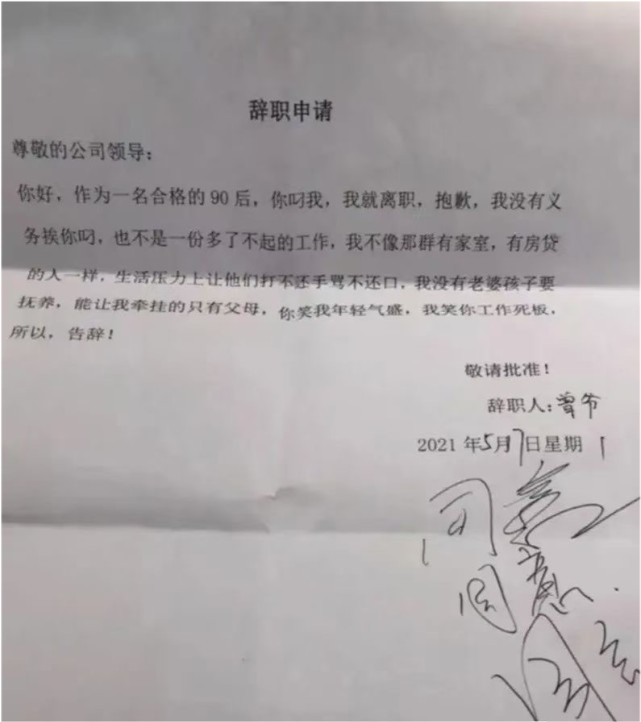 辞职申请
尊敬的公司领导：
你好，作为一名合格的90后，你叼我，我就离职，抱歉，我没有义
务挨你叼，也不是一份多了不起的工作，我不像那群有家室，有房贷
的人一样，生活压力上让他们打不还手骂不还口，我没有老婆孩子要
抚养，能让我牵挂的只有父母，你笑我年轻气盛，我笑你工作死板，
所以，告辞！
敬请批准！
辞职人：曾爷
2021年5月7日星期1
同意
同意